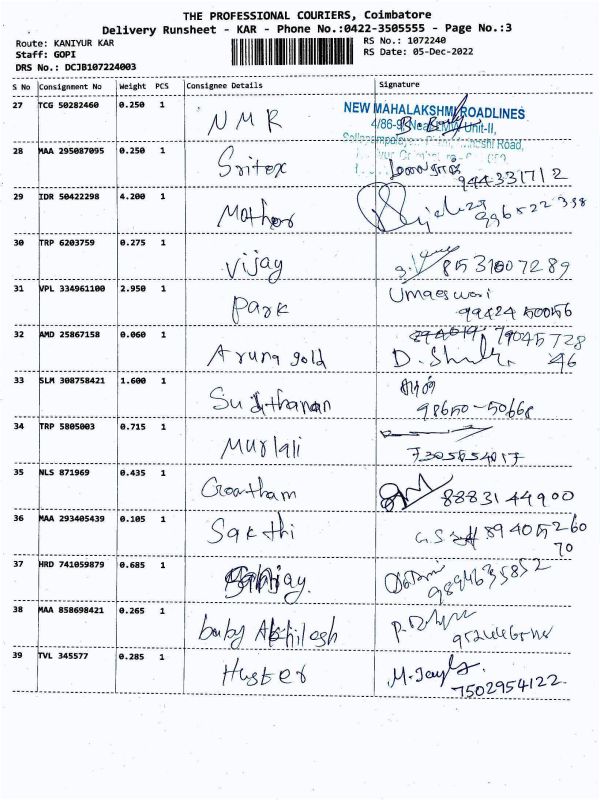 THE PROFESSIONAL COURIERS, Coimbatore
Delivery Runsheet - KAR - Phone No.:0422-3505555 - Page No.:3
Route: KANIYUR KAR RS No.: 1072240
Staff: GOPI RS Date: 05-Dec-2022
DRS No.: DCJB107224003
S No Consignment No Weight PCS Consignee Details Signature
27 TCG 50282460 0.250 1 NMR NEW MAHALAKSHMI ROADLINES
4/86-9, Near Unit-II,
Road,
28 MAA 295087095 0.250 1 Sritex
944331712
29 IDR 50422298 4.200 1 Mother
30 TRP 6203759 0.275 1 Vijay
31 VPL 334961100 2.950 1 Park Umaeswari
99424 50056
32 AMD 25867158 0.060 1 Aruna gold 79045728
46
33 SLM 308758421 1.600 1
98650-50668
34 TRP 5805003 0.715 1 Murlali
7305854017
35 NLS 871969 0.435 1 Groatham 8883144900
36 MAA 293405439 0.105 1 Sakthi
70
37 HRD 741059879 0.685 1
9894635852
38 MAA 858698421 0.265 1 baby Akhilesh
39 TVL 345577 0.285 1 Huster
7502954122